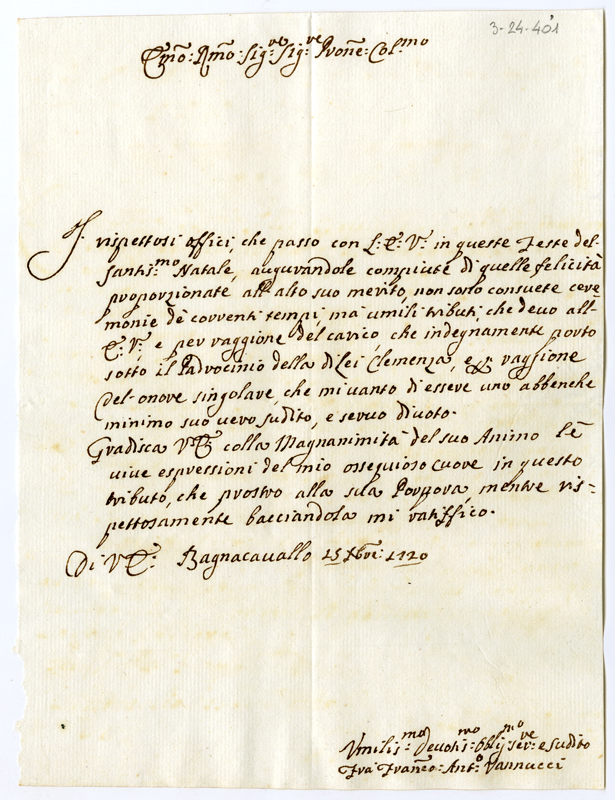 3-24-401
Emõ: Rmõ: Sig:re Sig:re Prone: Col:mo
I rispettosi offici, che passo con L: E: V: in queste Feste del
Santis:mo Natale, augurandole compiute di quelle felicità
proporzionate all'alto suo merito, non sono consuete cere=
monie de correnti tempi, ma umili tributi, che devo all=
E: V:, e per raggione del carico, che indegnamente porto
sotto il Padrocinio della di Lei Clemenza, e raggione
del onore singolare, che mi vanto di essere uno abbenche
minimo suo vero sudito, e servo divoto.
Gradisca V E colla Magnanimità del suo Animo le
vive espressioni del mio ossequioso cuore in questo
tributo, che prostro alla sua Porpora, mentre ris=
pettosamente bacciandola mi ratiffico.
Di V E: Bagnacavallo 15 Xbre: 1720
Umilis:mo Devotis:mo Obblig:mo ser:re e sudito
Fra Franco: Ant:o Vannucci